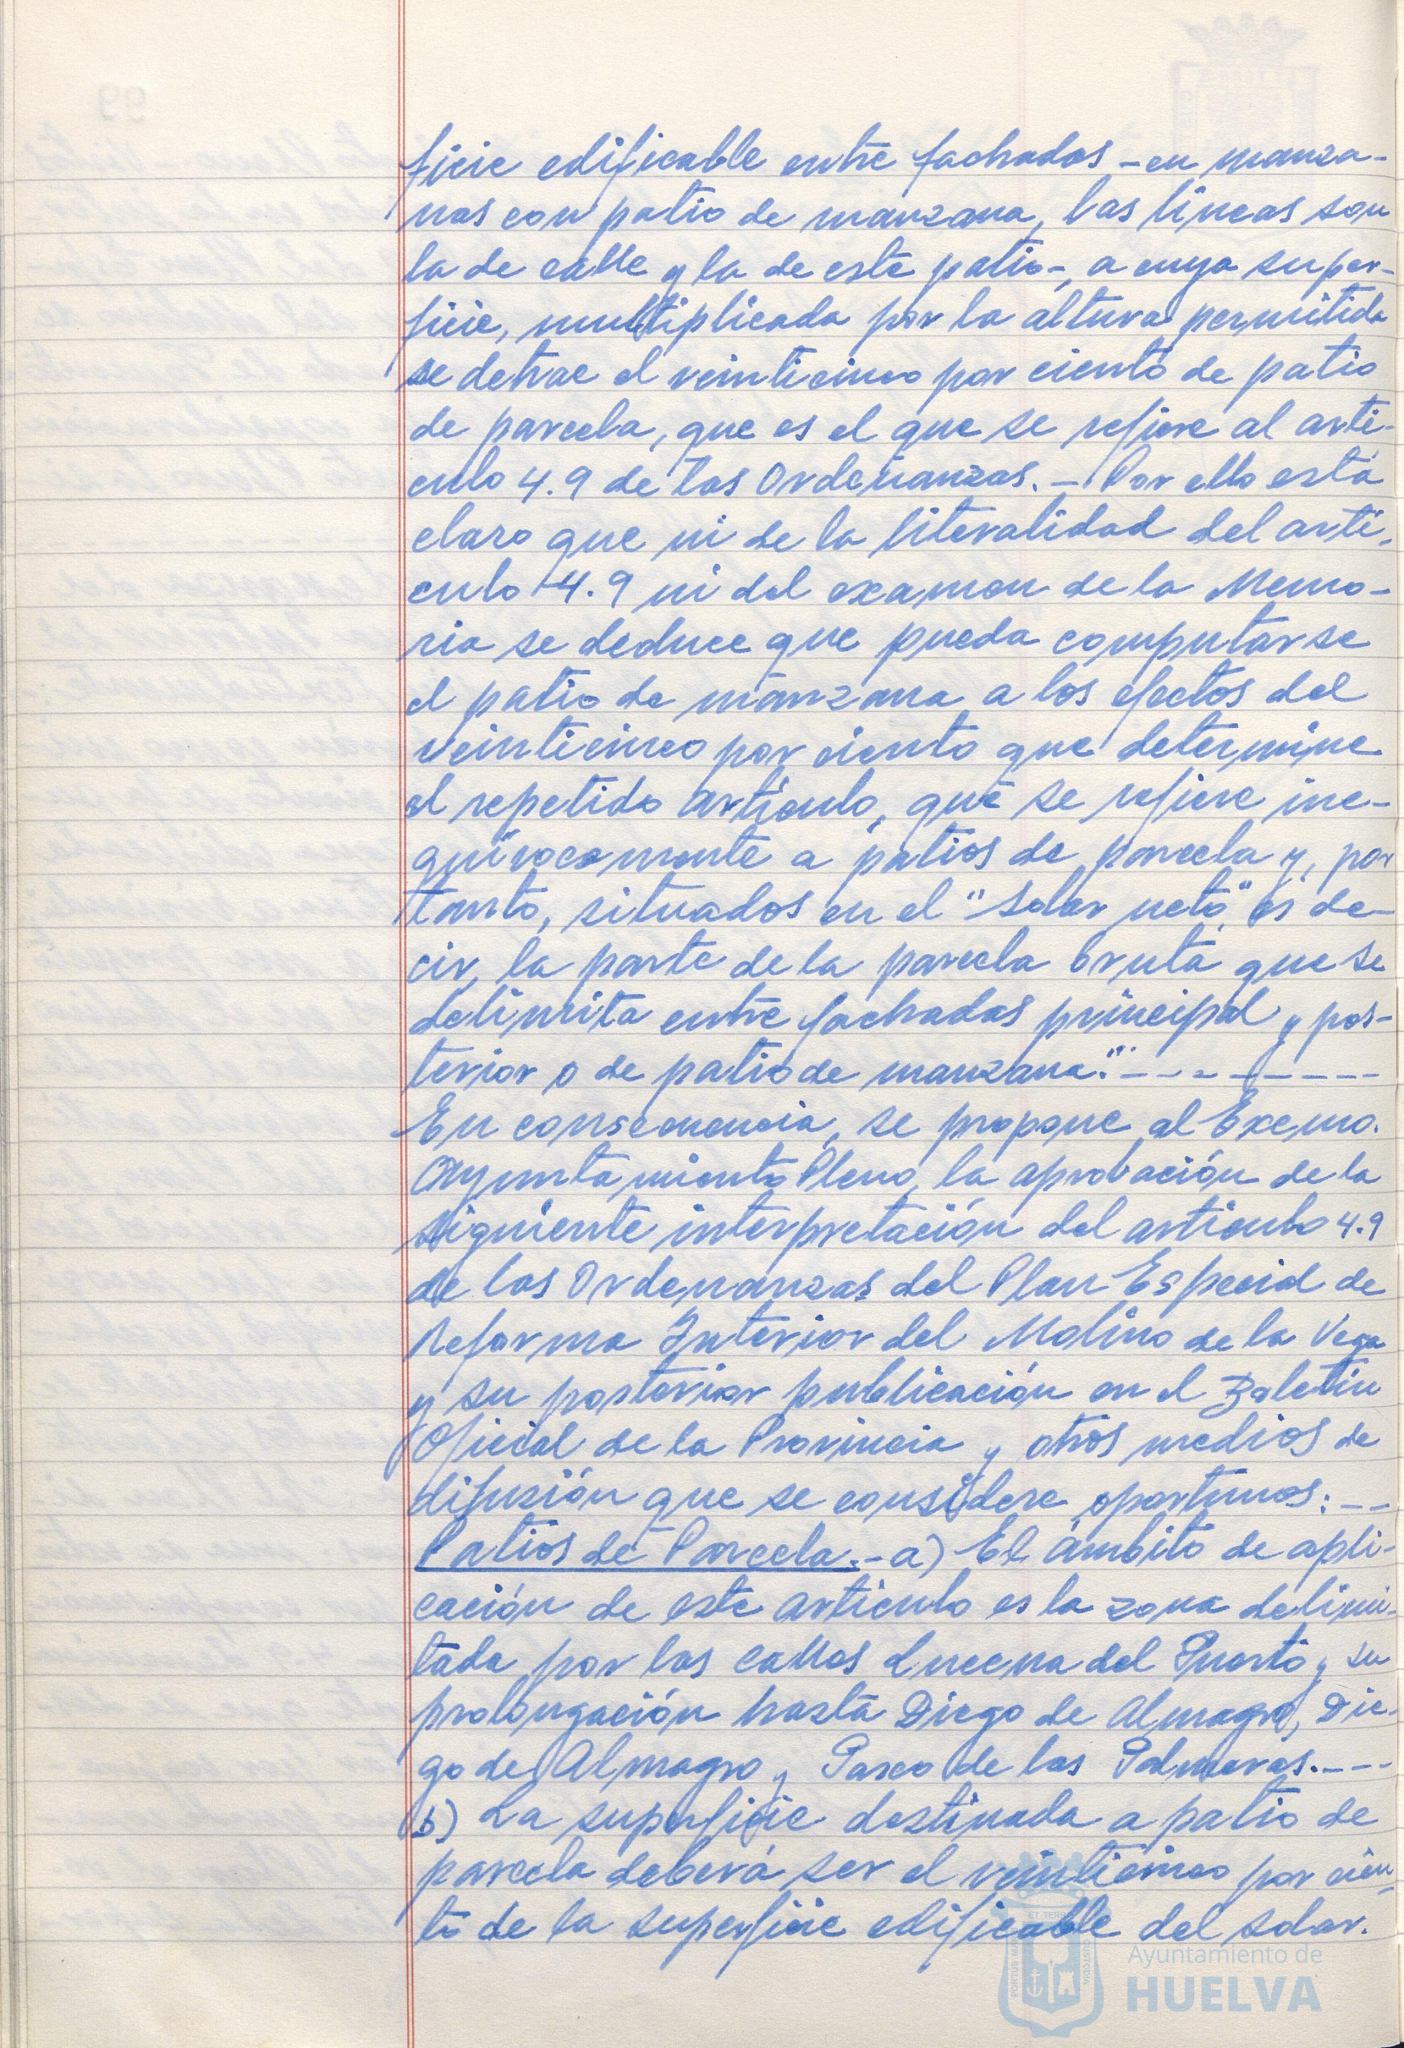 ficie edificable entre fachadas -en manza-
nas con patio de manzana, las líneas son
la de calle y la de este patio-, a cuya super-
ficie, multiplicada por la altura permitida
se detrae el veinticinco por ciento de patio
de parcela, que es el que se refiere al artí-
culo 4.9 de las Ordenanzas.- Por ello está
claro que ni de la literalidad del artí-
culo 4.9 ni del examen de la Memo-
ria se deduce que pueda computarse
el patio de manzana a los efectos del
veinticinco por ciento que determine
el repetido artículo, que se refiere ine-
quívocamente a patios de parcela y, por
tanto, situados en el "solar neto" es de-
cir, la parte de la parcela bruta que se
delimita entre fachadas principal y pos-
terior o de patio de manzana".---------
En consecuencia, se propone al Excmo.
Ayuntamiento Pleno, la aprobación de la
siguiente interpretación del artículo 4.9
de las Ordenanzas del Plan Especial de
Reforma Interior del Molino de la Vega
y su posterior publicación en el Boletín
Oficial de la Provincia y otros medios de
difusión que se considere oportunos:--
Patios de Parcela.-a) El ámbito de apli-
cación de este artículo es la zona delimi-
tada por las calles Lucena del Puerto y su
prolongación hasta Diego de Almagro, Die-
go de Almagro y Paseo de las Palmeras.----
b) La superficie destinada a patio de
parcela deberá ser el veinticinco por cien-
to de la superficie edificable del solar.
Ayuntamiento de
HUELVA